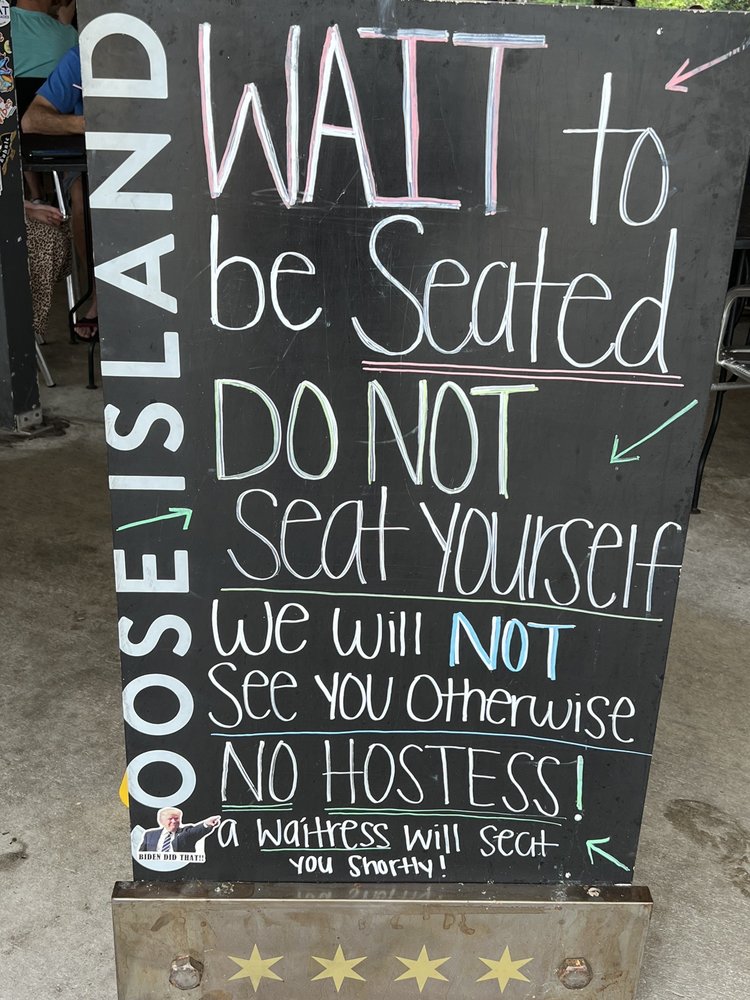 GOOSE ISLAND
WAIT to
be Seated
DO NOT
Seat Yourself
We will NOT
See You Otherwise
NO HOSTESS!
a waitress will seat
you shortly!
BIDEN DID THAT!!